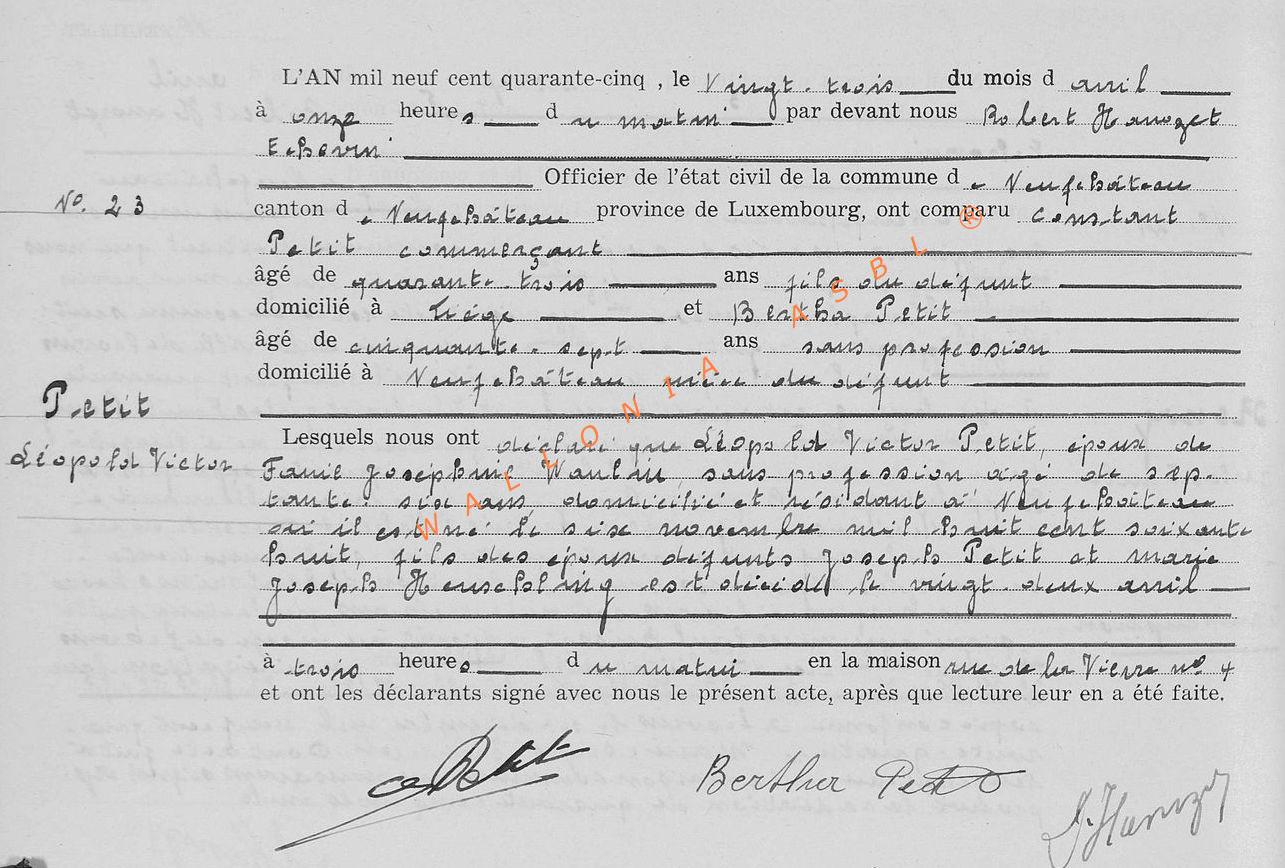 L'AN mil neuf cent quarante-cinq , le Vingt-trois du mois d avril
à onze heures du matin par devant nous Robert Hanozet
Echevin
Officier de l'état civil de la commune de Neufchâteau
No. 23
canton de Neufchâteau province de Luxembourg, ont comparu Constant
Petit commerçant
âgé de quarante-trois ans fils du défunt
domicilié à Liége et Bertha Petit
âgé de cinquante-sept ans sans profession
domicilié à Neufchâteau nièce du défunt
Petit
Léopold Victor
Lesquels nous ont déclaré que Léopold Victor Petit, époux de
Josephine sans profession agé de sep-
tante-six ans, domicilié et résidant à Neufchâteau
où il est né le six novembre mil huit cent soixante
huit, fils des époux défunts Joseph Petit et Marie
Joseph Heuschling est décédé le vingt-deux avril
à trois heures du matin en la maison rue de la Vierre no 4
et ont les déclarants signé avec nous le présent acte, après que lecture leur en a été faite.
Petit
Bertha Petit
WALLONIA ASBL ®